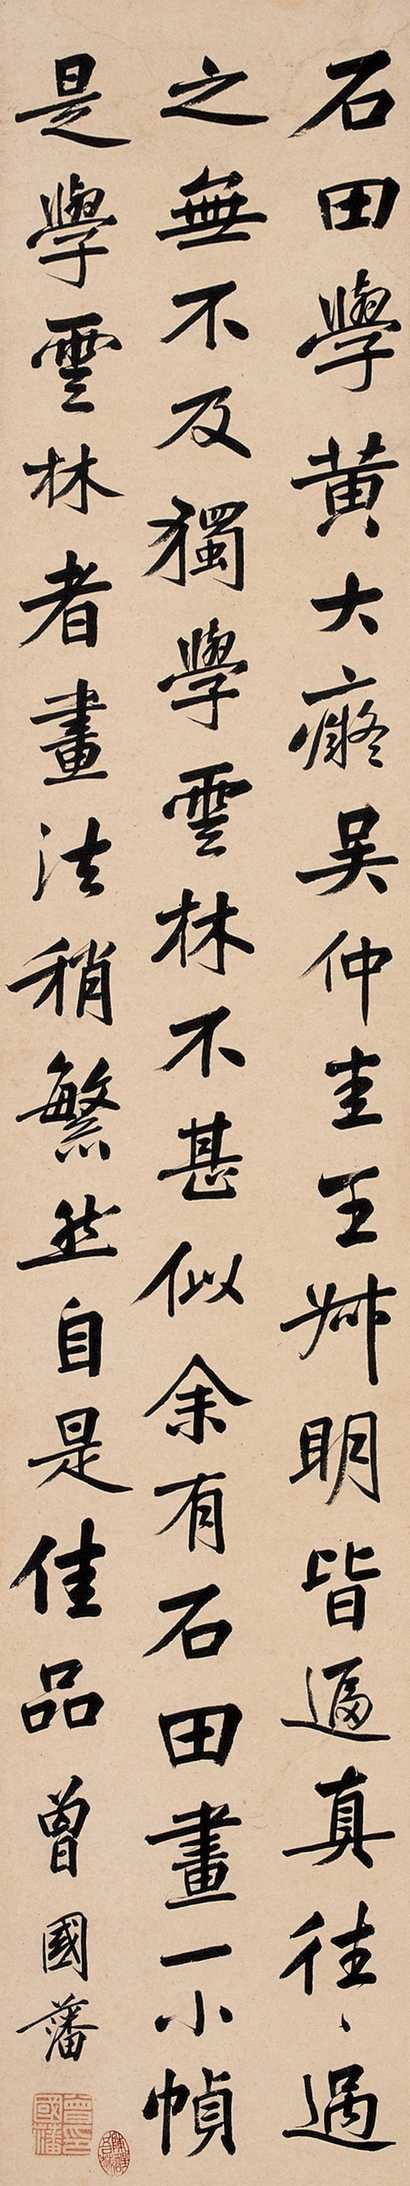 石田學黃大癡吳仲圭王叔明皆逼真往〻過
之無不及獨學雲林不甚似余有石田畫一小幀
是學雲林者畫法稍繁然自是佳品曾國藩